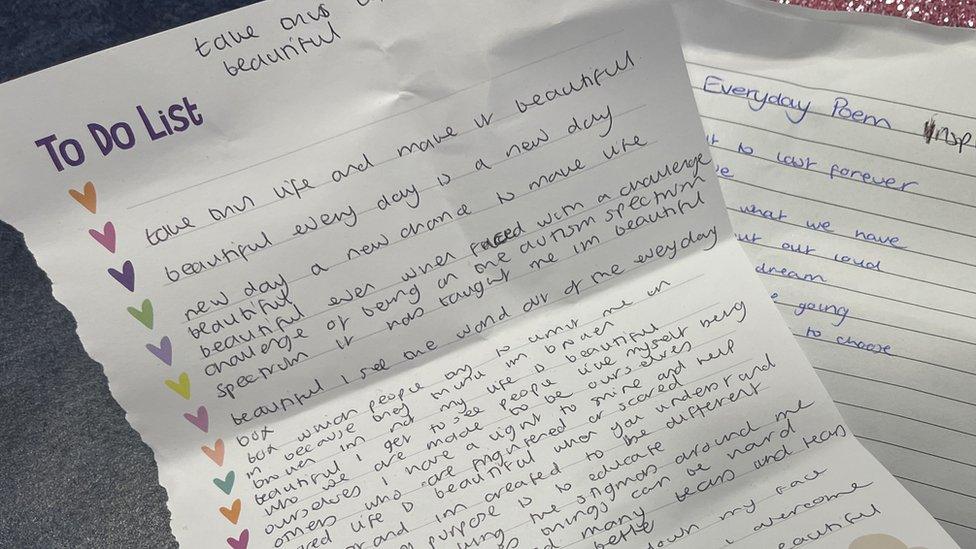 take this
beautiful
To Do List
take this life and make it beautiful
beautiful every day is a new day
new day a new chance to make life
beautiful
beautiful even when faced with a challenge
challenge of being on the autism spectrum
spectrum it has taught me im beautiful
beautiful I see the world out of the everyday
box which people try to limit me in
in because they think im broken
broken im not my life is beautiful
beautiful I get to see people like myself being
who we are made to be ourselves
ourselves I have a right to shine and help
others who are frightened or scared
life is beautiful when you understand
and im created to be different
purpose is to educate
the stigmas around me
things can be hard
many tears and tears
down my face
overcome
beautiful
Everyday Poem
to last forever
what we have
out loud
dream
going
to choose